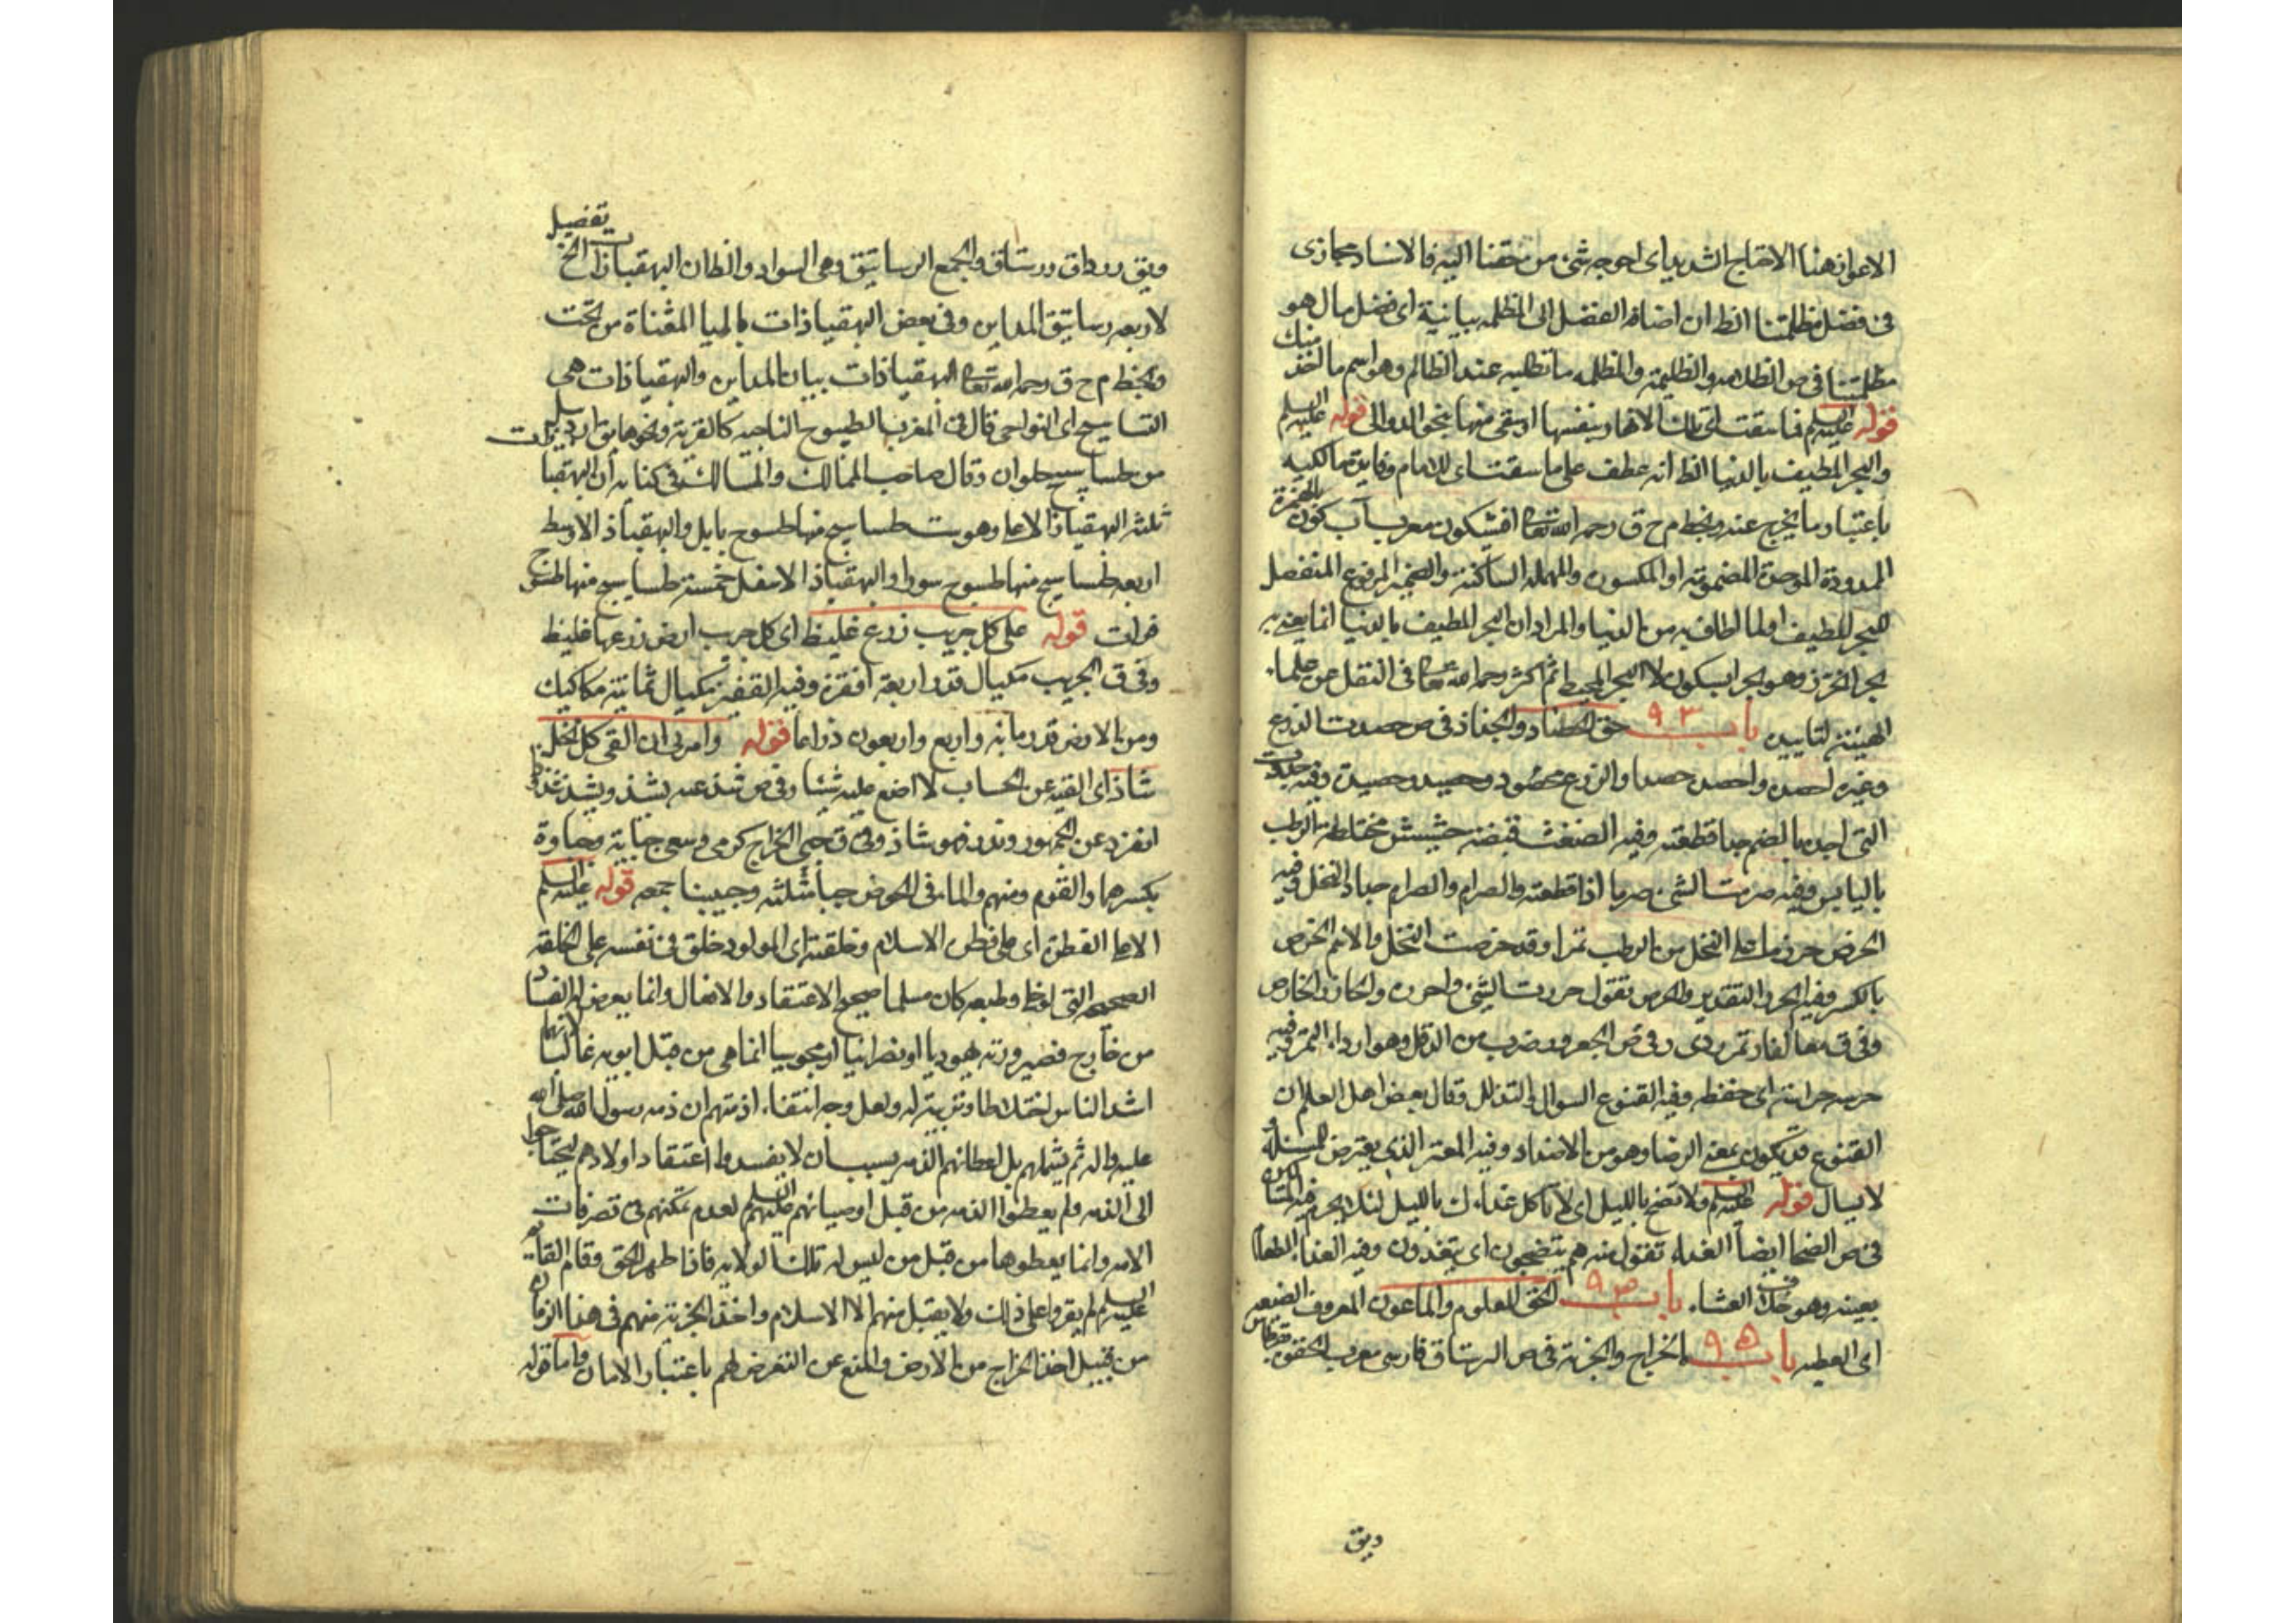 الاعوان هنا الاحتياج الشديد اى احوجه شئ من حقنا اليه فالاسناد مجازى
فى فضل مظلمتنا الظ ان اضافة الفضل الى المظلمه بيانية اى فضل مال هو
مظلمتنا فى ص الظلامه والظليمة والمظلمه ما تطلبه عند الظالم وهو اسم ما اخذ منك
قوله عليه السلم فما سقت اى تلك الانهار بنفسها او سقى منها بنحو الدوالى قوله عليه السلم
والبحر المطيف بالدنيا الظ انه عطف على ما سقت اى للامام وفايدة مالكيه
باعتبار ما يخرج عنه وبخط م ح ق رحمه الله تعالى افشيكون معرب آب كون بالهمزة
الممدودة الموحدة المضمومة او المكسوره والمهمله الساكنة والضمير المرفوع المنفصل
للبحر المطيف او لما اطاف به من الدنيا والمراد ان البحر المطيف بالدنيا انما يعنى به
بحر الخزر وهو بحر ابسكون لا البحر المحيط ثم اكثر رحمه الله تعالى فى النقل عن علماء
الهيئة لتاييده باب ٩٣ حق الحصاد والجذاذ فى ص حصدت الزرع
وغيره احصده واحصده حصدا والزرع محصود وحصيد وحصيدة وفيه جددت
الشئ اجده بالضم جدا قطعته وفيه الضغث قبضة حشيش مختلطه الرطب
باليابس وفيه صرمت الشئ صرما اذا قطعته والصرام والصرام جداد النخل وفيه
الخرص حرز ما على النخل من الرطب تمرا وقد خرصت النخل والاسم الخرص
بالكسر وفيه الحزر التقدير والخرص تقول حزرت الشئ واحزره والحازر الخارص
وفى ق معافاره تمر ردى وفى ص الجعرور ضرب من الدقل وهو اردا التمر وفيه
حرسه حراسة اى حفظه وفيه القنوع السوال والتذلل وقال بعض اهل العلم ان
القنوع قد يكون بمعنى الرضا وهو من الاضداد وفيه المعتر الذى يعترض للمسئلة
لا يسال قوله عليه السلم ولا تضح بالليل اى لا تاكل غداءك بالليل
فى ص الضحا ايضا الغداء تقول منه هم يتضحون اى يتغذون وفيه الغداء الطعام
بعينه وهو خلاف العشاء باب ٩٤ الحق المعلوم والماعون المعروف الصنيعه
اى العطيه باب ٩٥ الخراج والجزية فى ص الرستاق فارسى معرب الحقوه بقرطاس
ويق
ويق رزداق ورستاق والجمع الرساتيق وهى السواد والظان البهقباذات الخ تفصيل
لاربعه رساتيق المداين وفى بعض البهقياذات بالياء المثناة من تحت
وبخط م ح ق رحمه الله تعالى البهقباذات بيان المداين والبهقباذات هى
الطساسيج اى النواحى قال فى المغرب الطسوج الناحيه كالقرية ونحوها يق اردبيل
من طساسيج حلوان وقال صاحب الممالك والمسالك فى كتابه ان البهقباذات
ثلثه البهقباذ الاعلى وهو ست طساسيج منها طسوج بابل والبهقباذ الاوسط
اربعه طساسيج منها طسوج سورا والبهقباذ الاسفل خمسة طساسيج منها طسوج
فرات قوله على كل جريب زرع غليظ اى كل جريب ارض زرعها غليظ
وفى ق الجريب مكيال قدر اربعة اقفزة وفيه القفيز مكيال ثمانية مكاكيك
ومن الارض قدر مائة واربع واربعون ذراعا قوله وامرنى ان القى كل نخل
شاذ اى القيه عن الحساب لا اضع عليه شيئا وفى ص شذ عنه يشذ ويشذ شذوذا
انفرد عن الجمهور وندر فهو شاذ وفى ق جبى الخراج كرمى وسعى جباية وجباوة
بكسرهما والقوم ومنهم والماء فى الحوض جبا مثلثه وجبيا جمعه قوله عليه السلم
الا على الفطرة اى على فطرة الاسلام وخلقته اى المولود خلق فى نفسه على الخلقه
الصحيحه التى لو خلى وطبعه كان مسلما صحيح الاعتقاد والافعال وانما يعرض له الفساد
من خارج فصيرورته يهوديا او نصرانيا او مجوسيا انما هى من قبل ابويه غالبا لانهما
اشد الناس اختلاطا وتربيته له ولعل وجه انتفاء اذمتهم ان ذمه رسول الله صلى الله
عليه واله لم يشملهم بل اعطاهم الذمه بسبب ان لا يفسدوا اعتقاد اولادهم ليحتاجوا
الى الذمه ولم يعطوا الذمه من قبل اوصيائهم عليهم السلم لعدم تمكنهم فى تصرفات
الامر وانما يعطوها من قبل من ليس له تلك الولايه فاذا ظهر الحق وقام القائم
عليه السلم لم يقروا على ذلك ولا يقبل منهم الا الاسلام واخذ الجزية منهم فى هذا الزمان
من قبيل اخذ الخراج من الارض والمنع عن التعرض لهم باعتبار الامان واما قوله